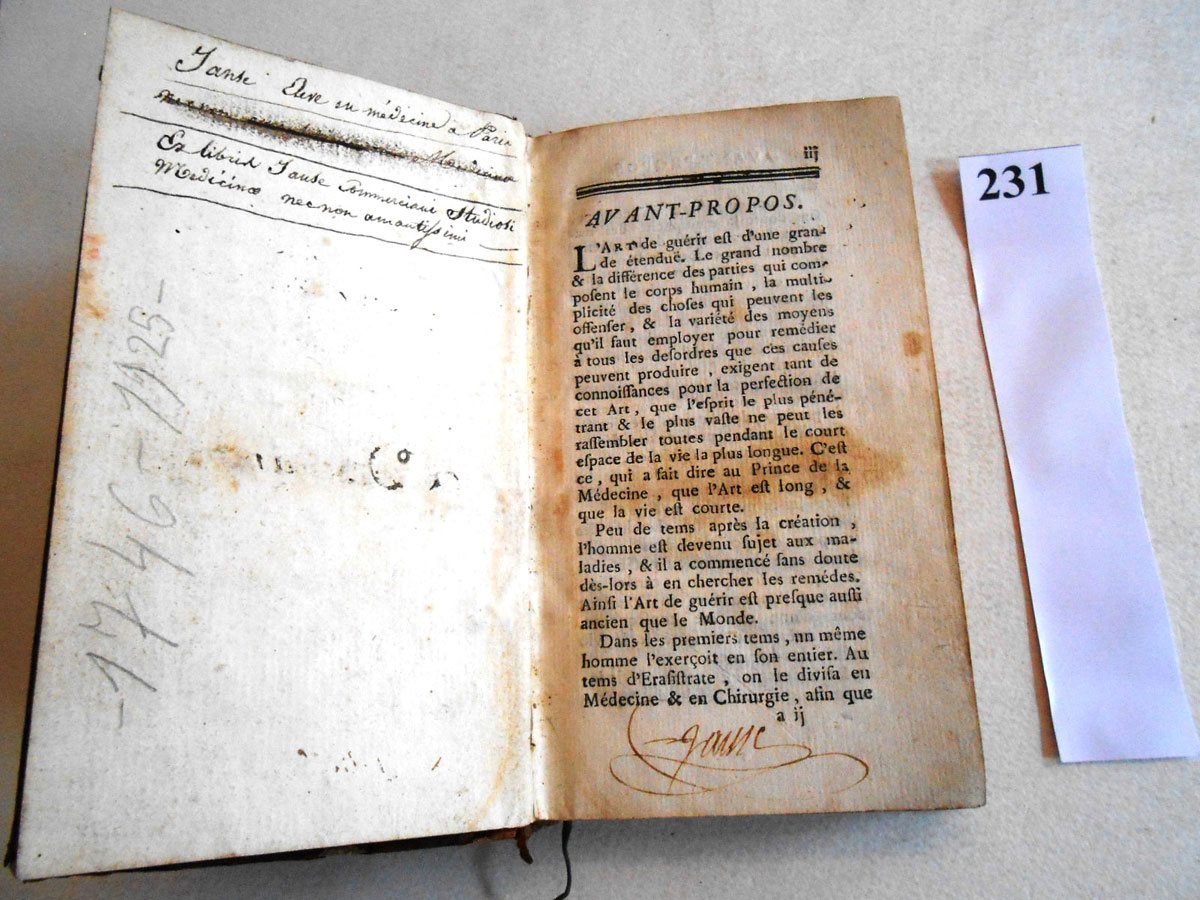 Jause Eleve en médecine a Paris
Ex libris Jause Commerciani Studiosi
Medecinæ nec non amantissimi
-1746-1925-
iij
AVANT-PROPOS.
L'ART de guérir eſt d'une gran-
de étenduë. Le grand nombre
& la différence des parties qui com-
poſent le corps humain, la multi-
plicité des choſes qui peuvent les
offenſer, & la variété des moyens
qu'il faut employer pour remédier
à tous les deſordres que ces cauſes
peuvent produire, exigent tant de
connoiſſances pour la perfection de
cet Art, que l'eſprit le plus péné-
trant & le plus vaſte ne peut les
raſſembler toutes pendant le court
eſpace de la vie la plus longue. C'eſt
ce, qui a fait dire au Prince de la
Médecine, que l'Art eſt long, &
que la vie eſt courte.
Peu de tems après la création,
l'homme eſt devenu ſujet aux ma-
ladies, & il a commencé ſans doute
dès-lors à en chercher les remédes.
Ainſi l'Art de guérir eſt preſque auſſi
ancien que le Monde.
Dans les premiers tems, un même
homme l'exerçoit en ſon entier. Au
tems d'Eraſiſtrate, on le diviſa en
Médecine & en Chirurgie, afin que
a ij
Jause
231